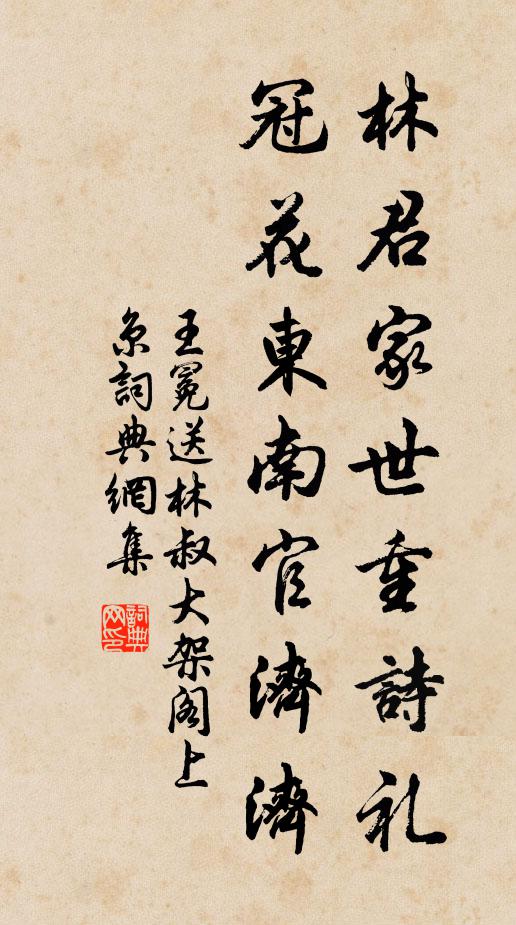 林君家世重詩礼
冠花東南官濟濟
王冕送林叔大架阁上
京詞典網集
詞典网印